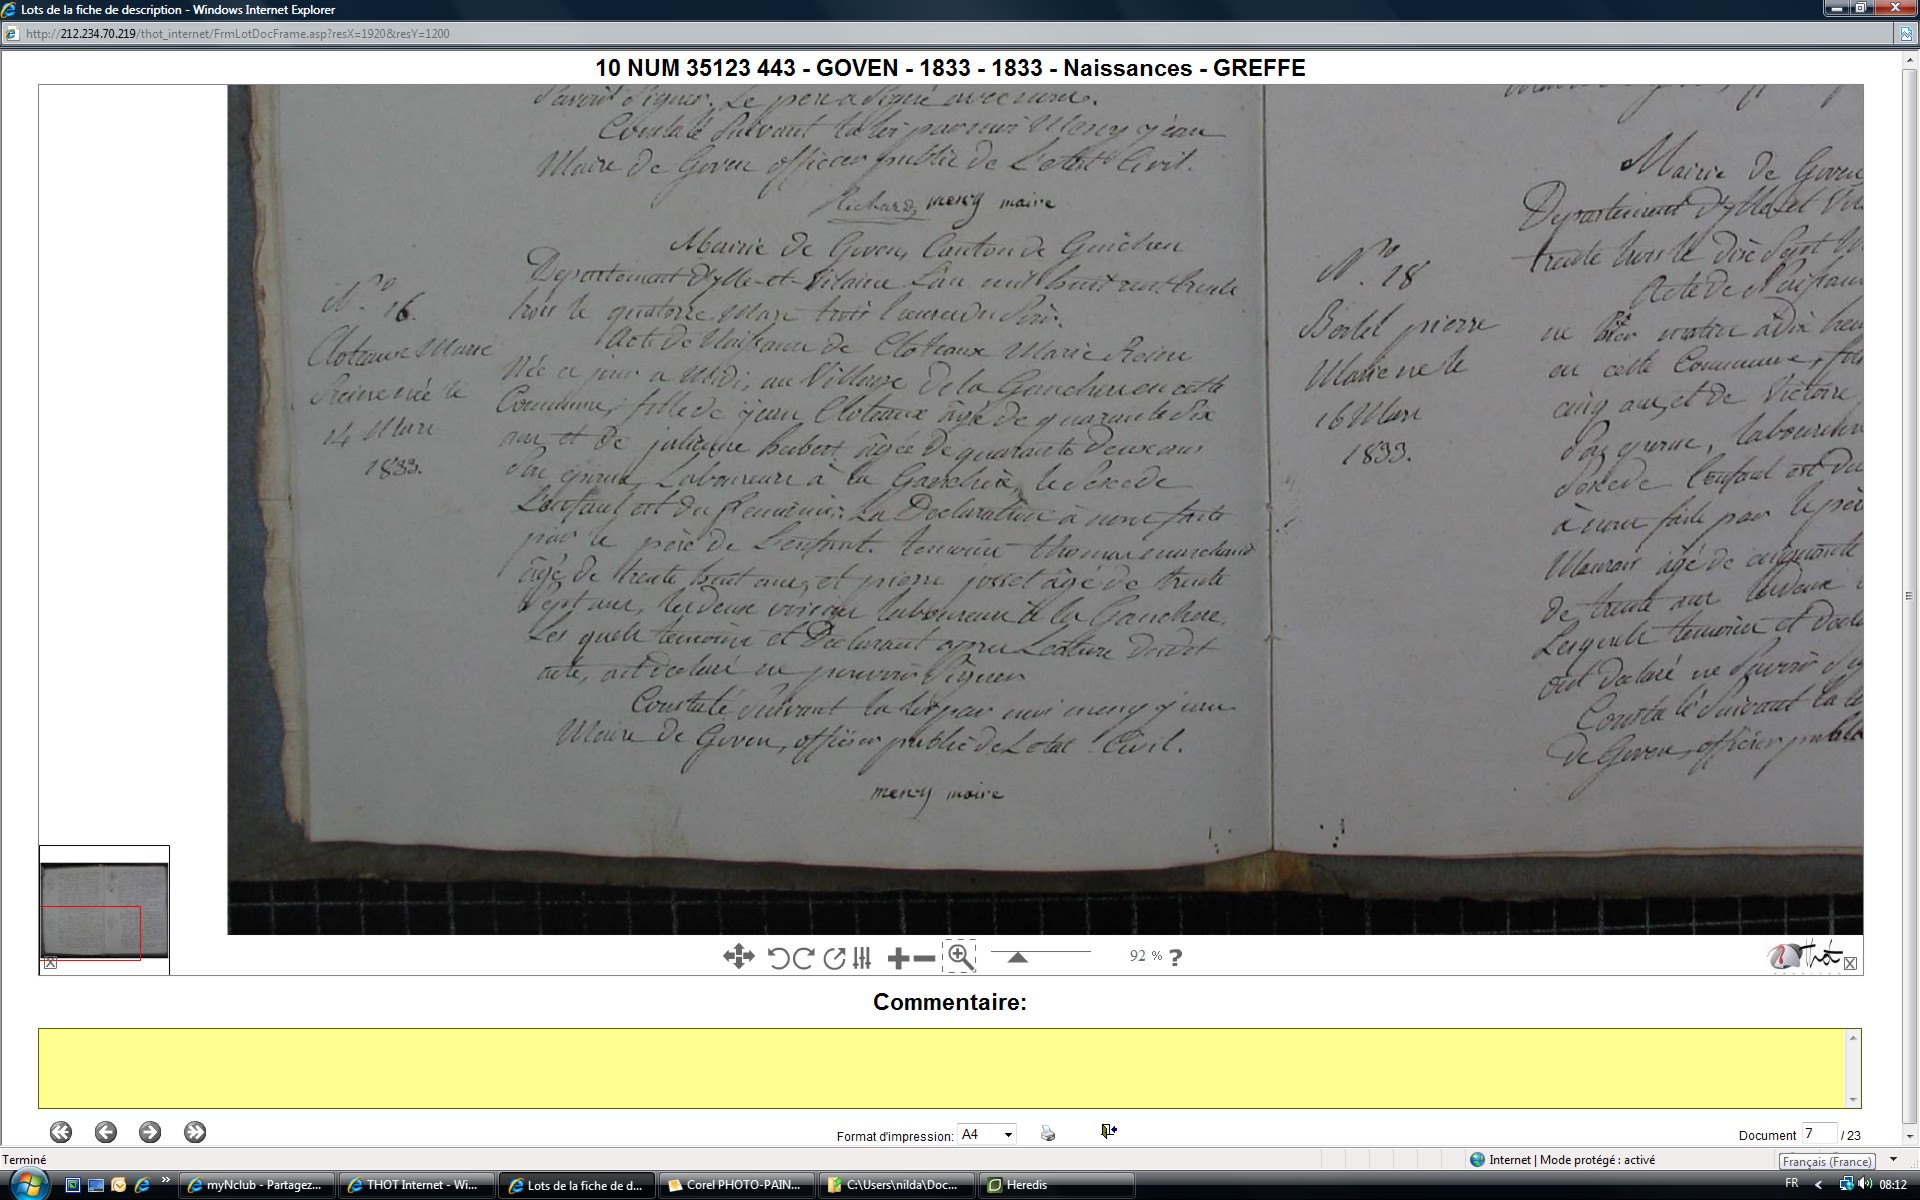 Lots de la fiche de description - Windows Internet Explorer
http://212.234.70.219/thot_internet/FrmLotDocFrame.asp?resX=1920&resY=1200
10 NUM 35123 443 - GOVEN - 1833 - 1833 - Naissances - GREFFE
Signer. Le père a Signé avec nous.
Constaté Suivant la loi par moi Mercy jean
Maire de Goven officier public de L'etat Civil.
Richard mercy maire
Mairie de Goven, Canton de Guichen
Departement d'ylle-et-Vilaine L'an mil huit cent trente
trois le quatorze Mars trois heures du Soir.
Acte de Naissance de Cloteaux Marie Reine
Née ce jour a Midi, au Village de la Ganchere en cette
Commune, fille de jean Cloteaux âgé de quarante Six
ans et de julienne hubert âgée de quarante deux ans
Laboureurs à la
L'enfant est du feminin: La Declaration à nous faite
par le père de L'enfant. temoins thomas marchand
âgé de trente huit ans, et pierre josset âgé de trente
Sept ans, les deux voisins laboureurs à la Ganchere,
Les quels temoins et Declarant apres Lecture dudit
acte, ont declaré ne pouvoir Signer
Constaté Suivant la loi par moi mercy jean
Maire de Goven, officier public de L'etat Civil.
mercy maire
N.º 16.
Cloteaux Marie
Reine née le
14 Mars
1833.
Mairie de Goven
Departement d'ylle et Vil
trente trois le dix Sept M
Acte de Naissan
N.º 18
Bertel pierre
Marie né le
16 Mars
1833.
né hier matin à dix heu
en cette Commune, fils
cinq ans, et de Victoire
laboureurs
L'enfant est du
à nous faite par le père
âgé de cinquante
de trente ans les deux
Lesquels temoins et decla
ont declaré ne Savoir Si
Constaté Suivant la lo
de Goven, officier public
92 % ?
Thot
Commentaire:
Format d'impression: A4
Document 7 / 23
Terminé
Internet | Mode protégé : activé
Français (France)
myNclub - Partagez...
THOT Internet - Wi...
Lots de la fiche de d...
Corel PHOTO-PAIN...
C:\Users\nilda\Doc...
Heredis
FR
08:12